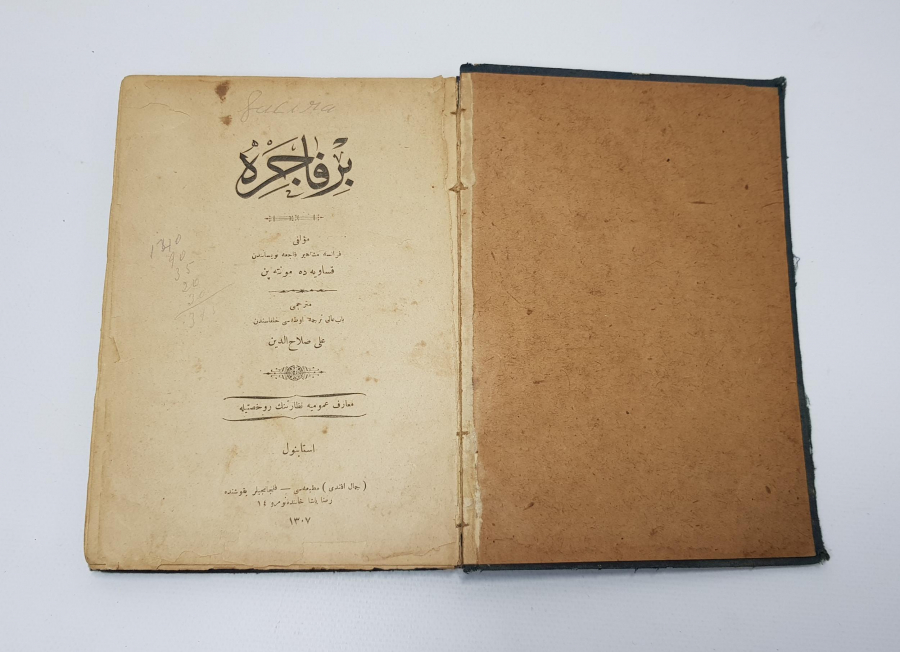 بر فاجره
مؤلفی
فرانسه مشاهیر فاجعه نویساندن
قساویه ده مونته پن
مترجمی
بابعالی ترجمه اوطه‌سی خلفاسندن
علی صلاح الدین
معارف عمومیه نظارتنك رخصتیله
استانبول
( جمال افندی ) مطبعه‌سی — فلجانجیلر یقوشنده
رضا پاشا خاننده نومرو ١٤
١٣٠٧